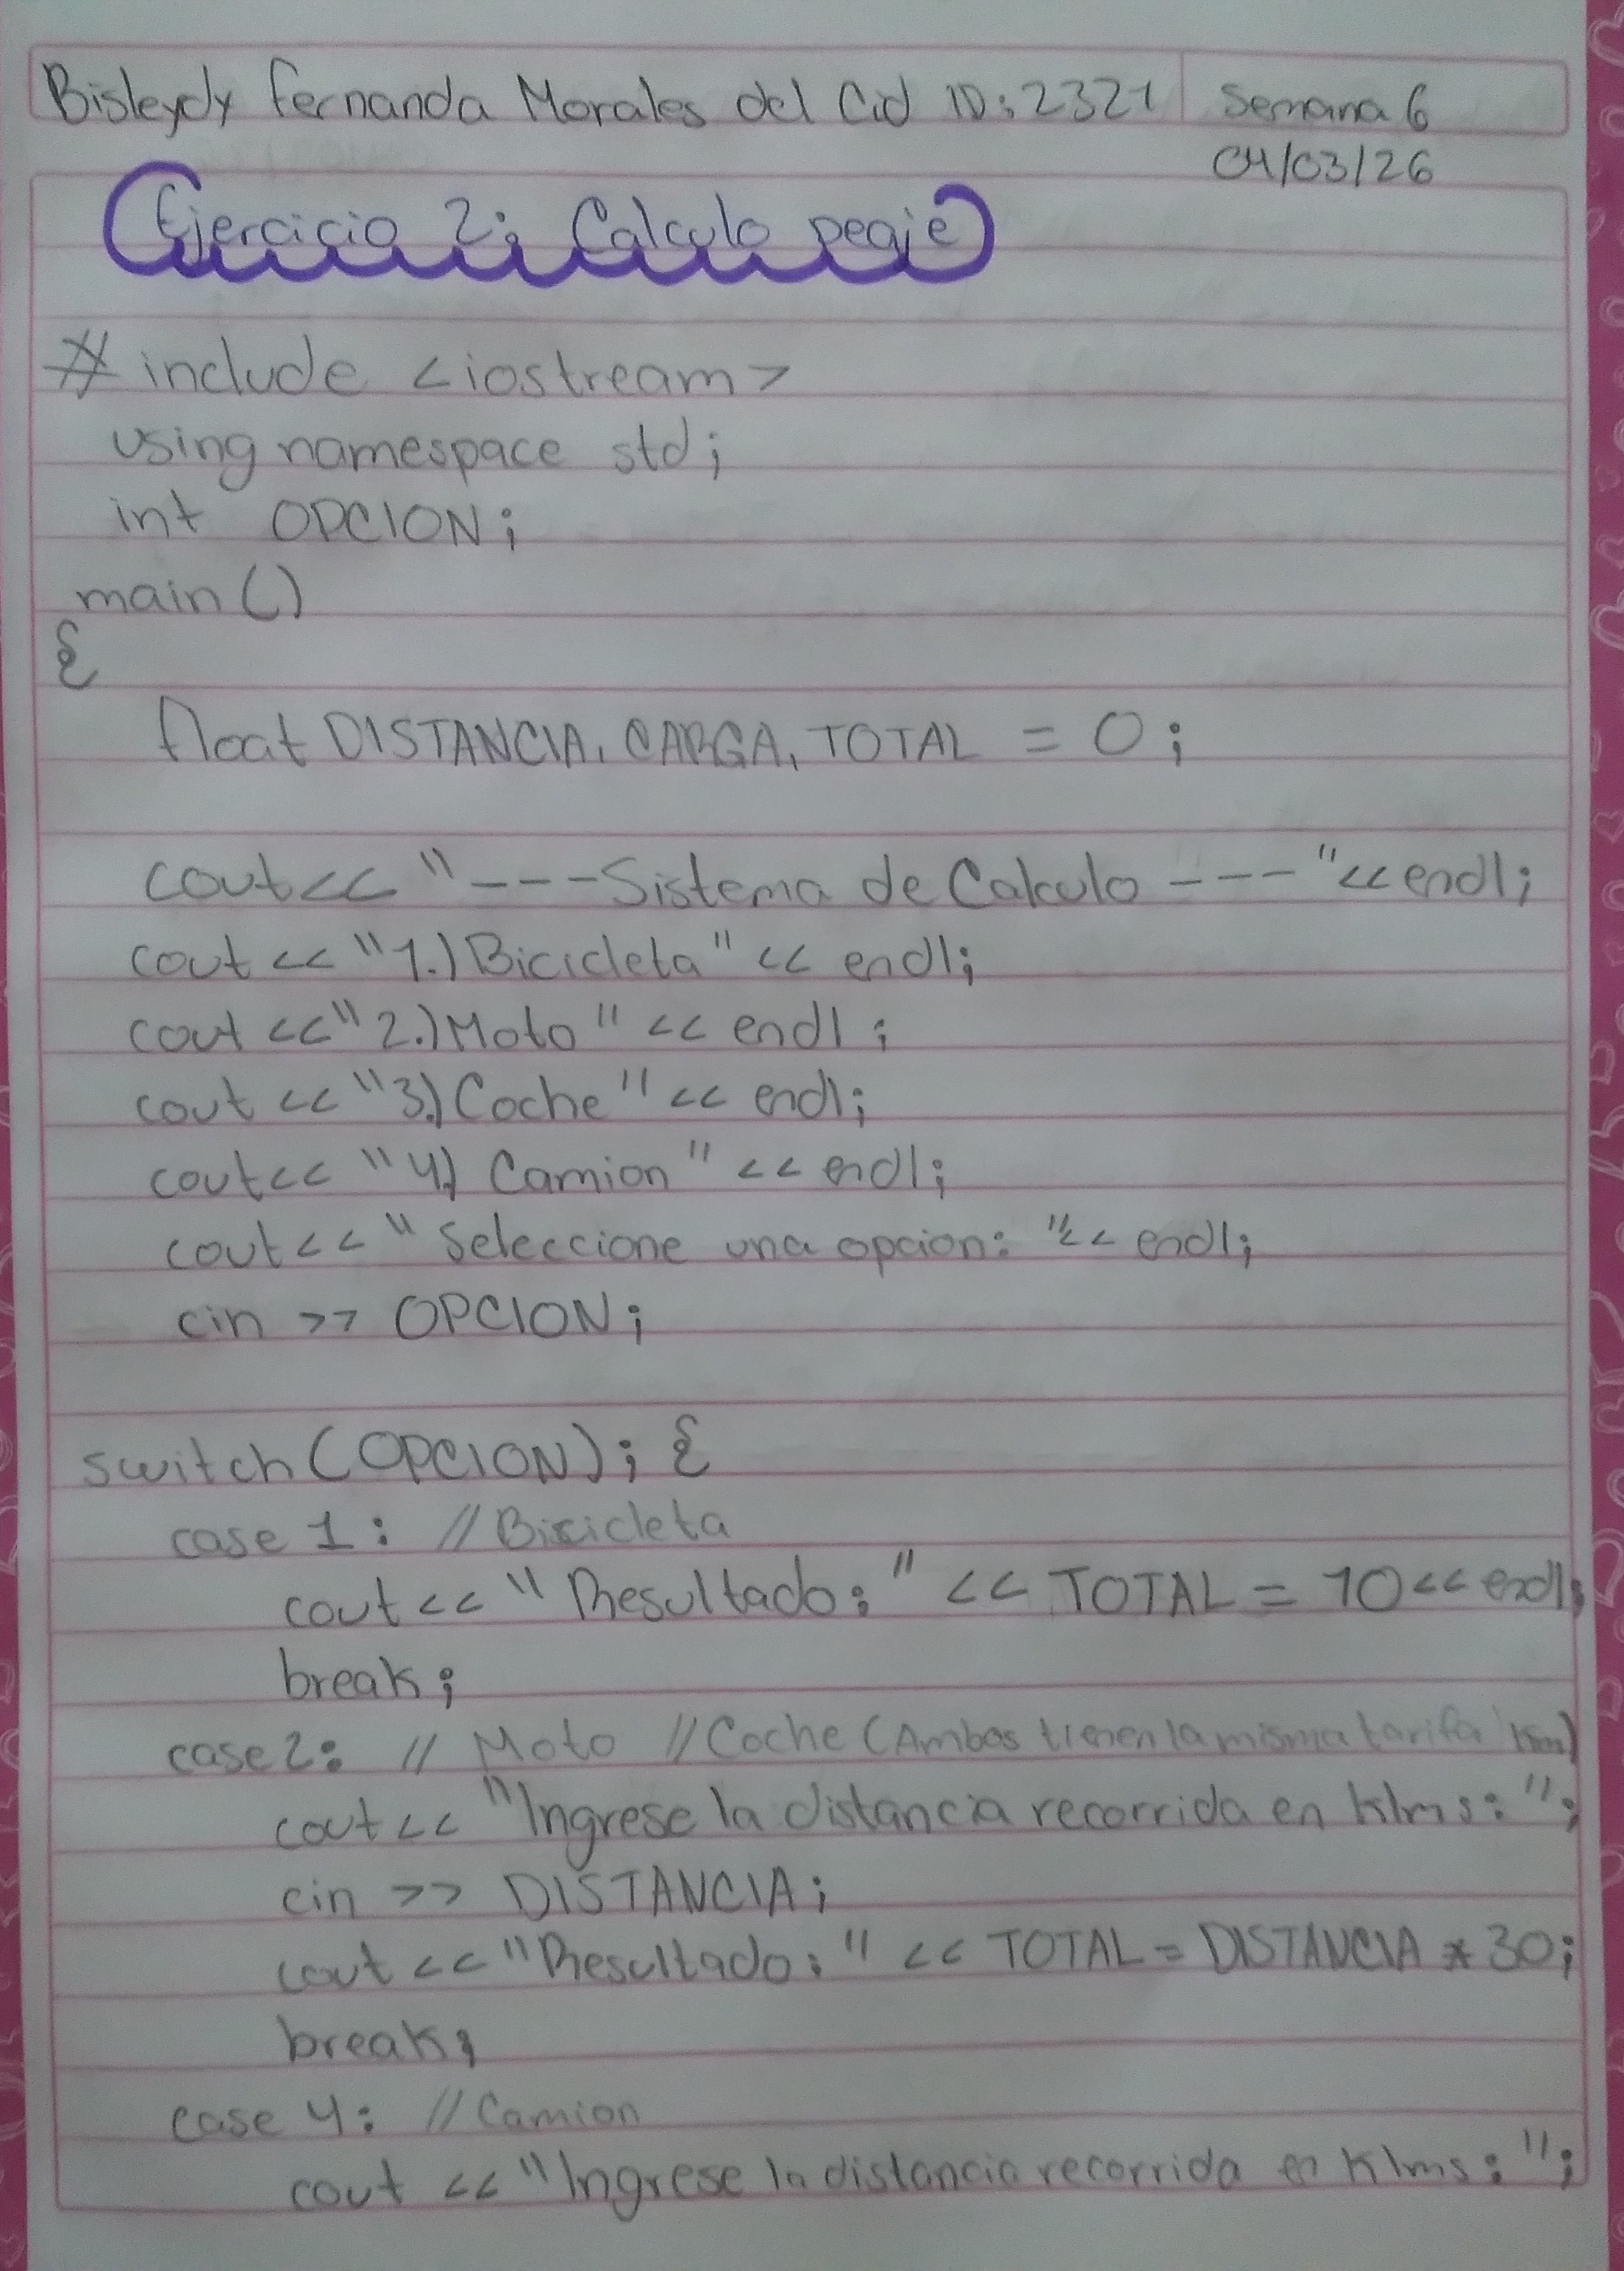 Bisleydy Fernanda Morales del Cid ID:2321 Semana 6
04/03/26
Ejercicio 2: Calculo peaje
# include <iostream>
using namespace std;
int OPCION;
main()
{
float DISTANCIA, CARGA, TOTAL = 0;
cout<< "---Sistema de Calculo ---"<< endl;
cout << "1.) Bicicleta" << endl;
cout <<"2.) Moto" << endl;
cout << "3.) Coche" << endl;
cout<< "4.) Camion" << endl;
cout<< "Seleccione una opcion: "<< endl;
cin >> OPCION;
switch(OPCION); {
case 1: //Bicicleta
cout<< "Resultado: " << TOTAL = 10<< endl;
break;
case 2: // Moto //Coche (Ambos tienen la misma tarifa km)
cout<< "Ingrese la distancia recorrida en klms: ";
cin >> DISTANCIA;
cout << "Resultado: " << TOTAL = DISTANCIA * 30;
break;
case 4: //Camion
cout << "Ingrese la distancia recorrida en klms: ";